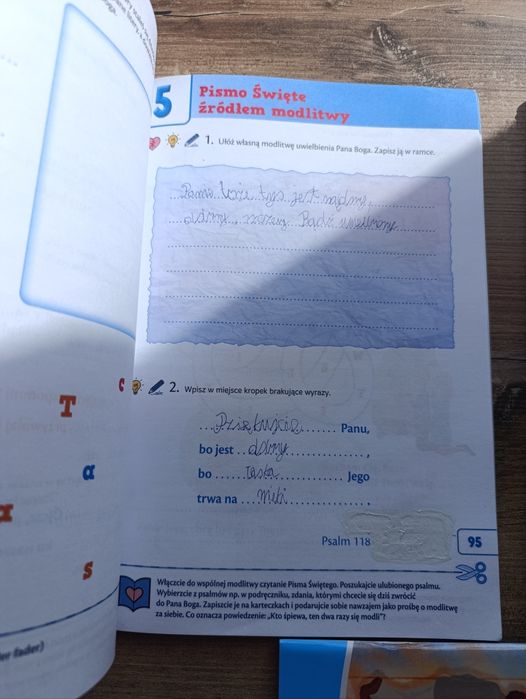 5
Pismo Święte
źródłem modlitwy
1. Ułóż własną modlitwę uwielbienia Pana Boga. Zapisz ją w ramce.
Panie Boże tyś jest
dobry Bądź uwielbiony
2. Wpisz w miejsce kropek brakujące wyrazy.
Dziękujcie Panu,
bo jest dobry,
bo łaska Jego
trwa na wieki.
Psalm 118
95
Włączcie do wspólnej modlitwy czytanie Pisma Świętego. Poszukajcie ulubionego psalmu.
Wybierzcie z psalmów np. w podręczniku, zdania, którymi chcecie się dziś zwrócić
do Pana Boga. Zapiszcie je na karteczkach i podarujcie sobie nawzajem jako prośbę o modlitwę
za siebie. Co oznacza powiedzenie: „Kto śpiewa, ten dwa razy się modli"?
T
c
a
s